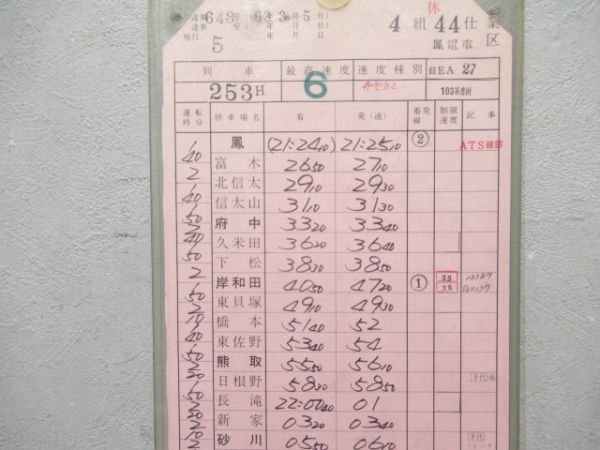 休
4組 44仕業
5
鳳電車区
列車 最高速度 速度種別 日EA 27
253H 6 103系6両
運転時分 停車場名 着 発(通) 着発線 制限速度 記事
鳳 (21:24 10) 21:25 10 ②
1 40 富木 26 50 27 10
2 北信太 29 10 29 30
1 40 信太山 31 10 31 30
1 50 府中 33 20 33 40
2 40 久米田 36 20 36 40
1 50 下松 38 30 38 50
2 岸和田 40 50 47 20 ① 35 25
1 50 東貝塚 49 10 49 30
2 10 橋本 51 40 52
1 40 東佐野 53 40 54
1 50 熊取 55 50 56 10
2 20 日根野 58 30 58 50
1 50 長滝 22:00 40 01
2 20 新家 03 20 03 40
2 10 砂川 05 50 06 10